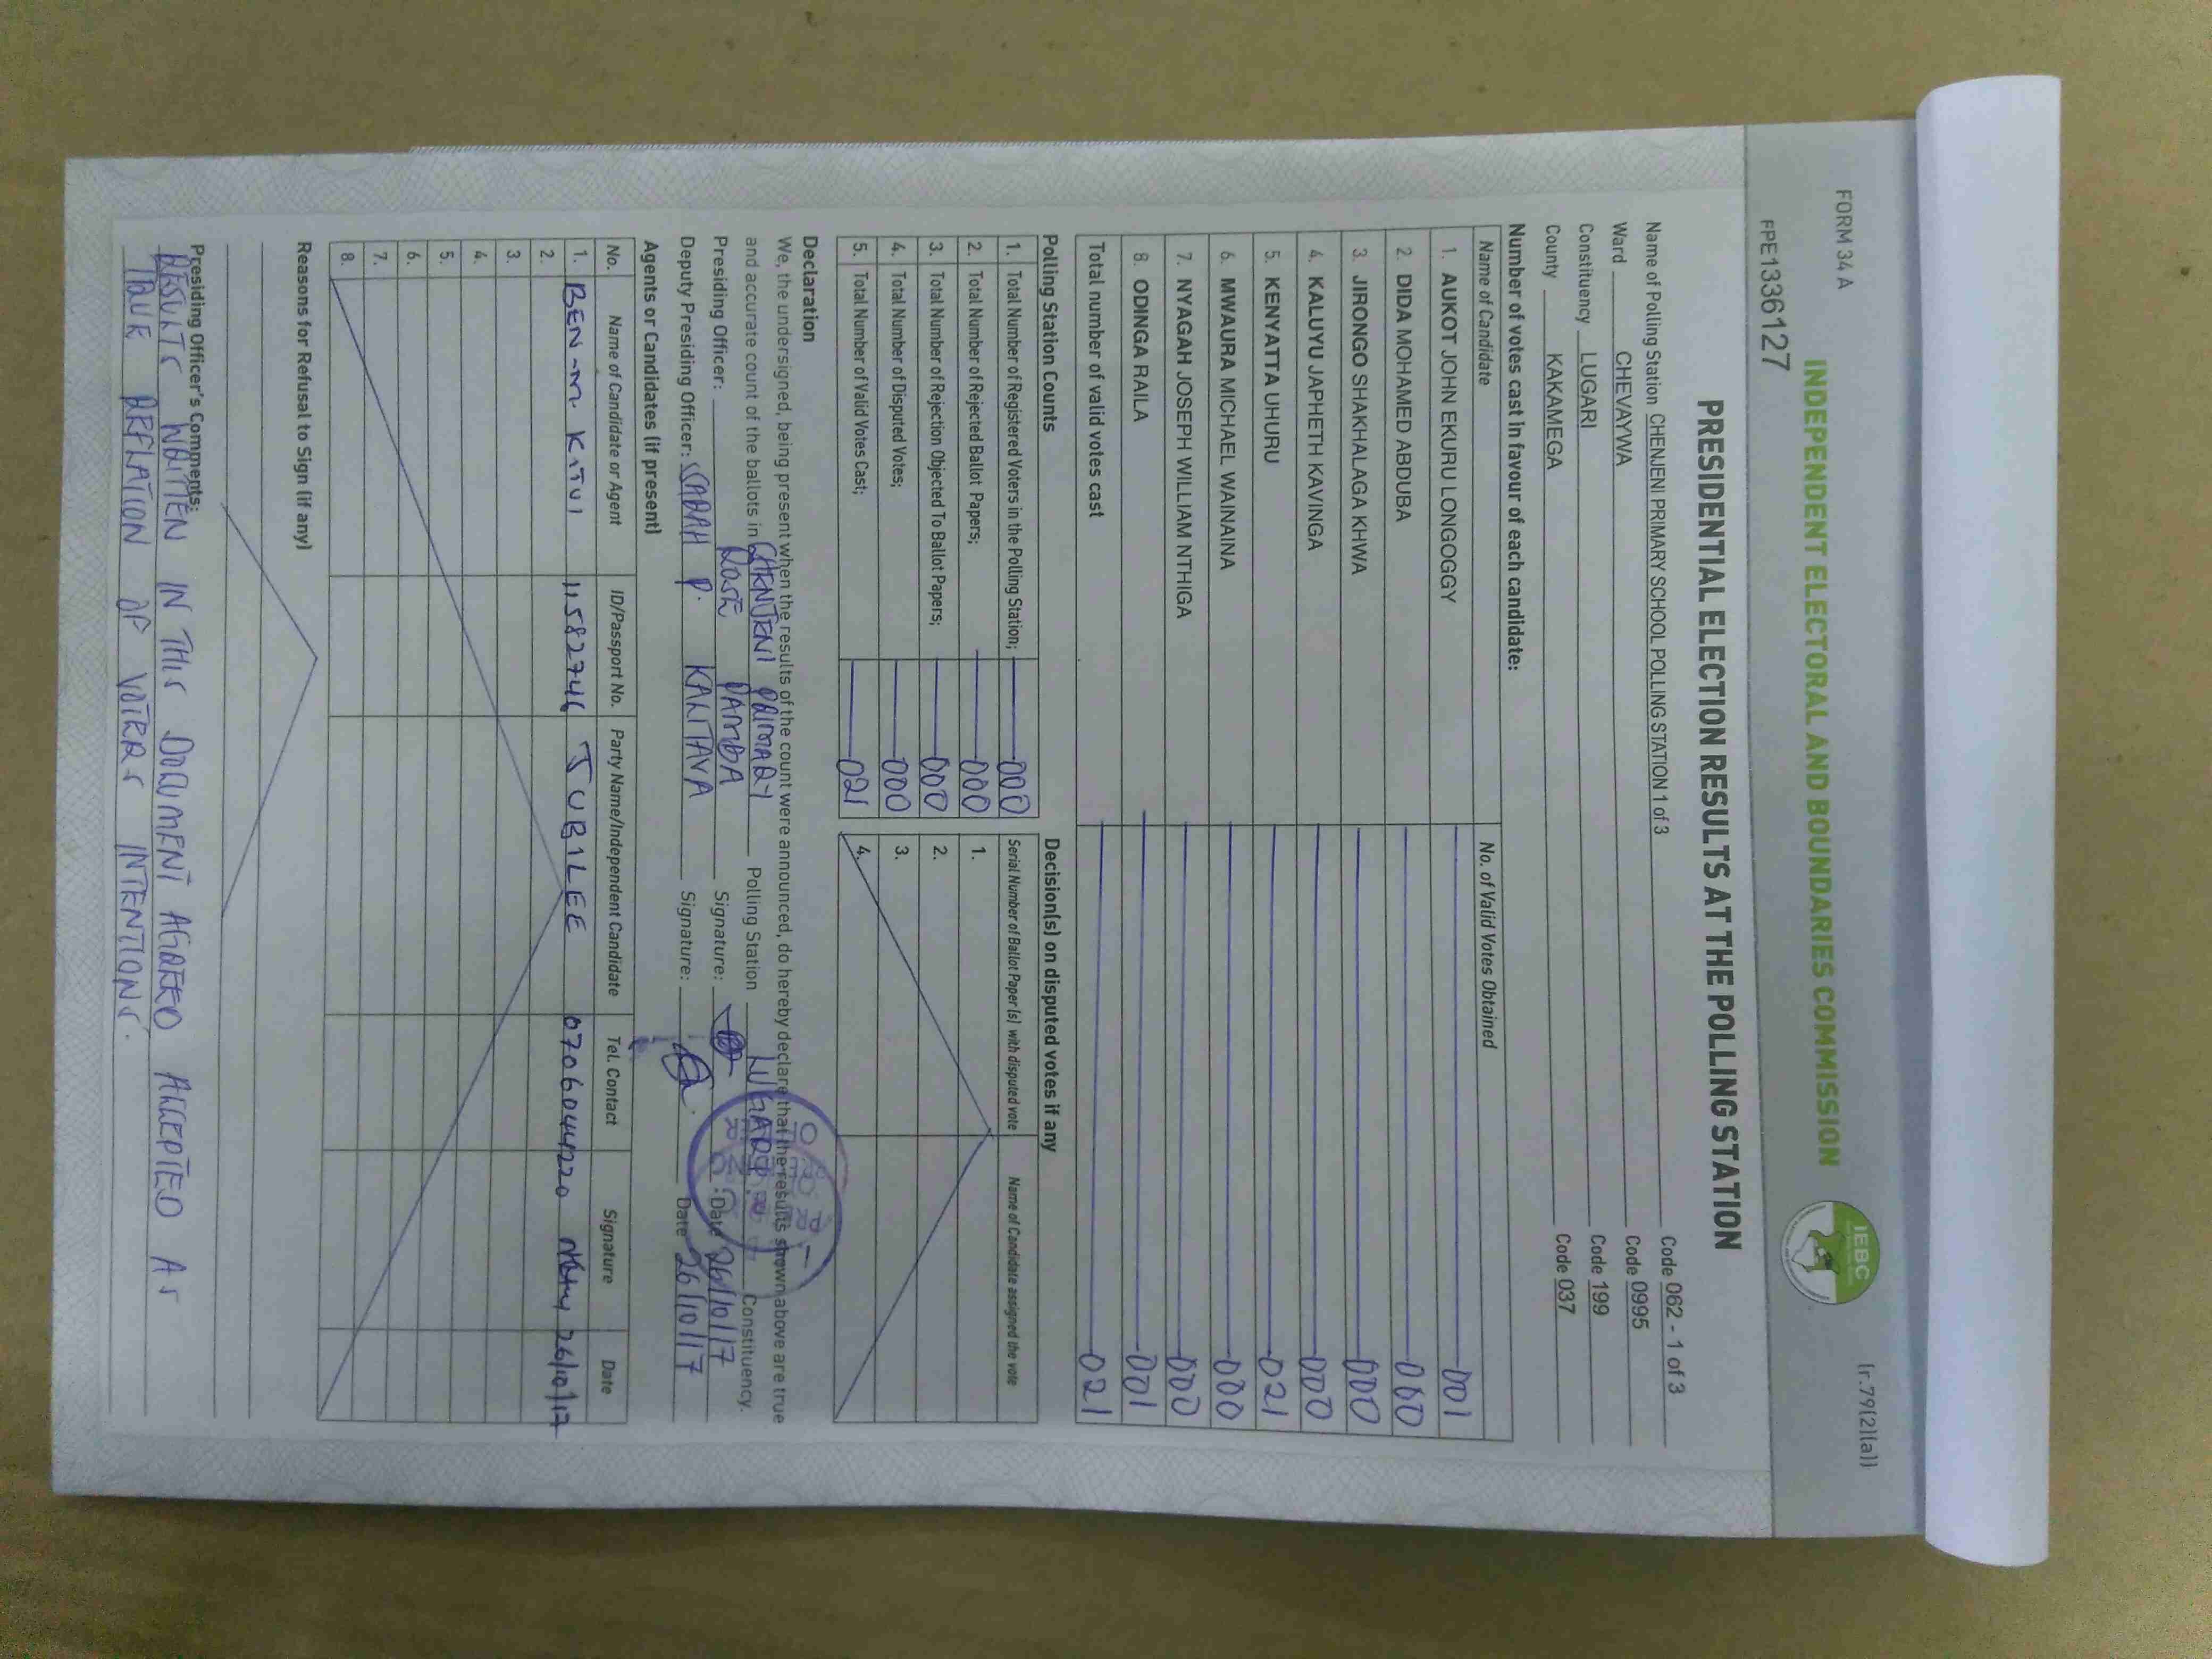 FORM 34 A
(r.79(2)(a))
INDEPENDENT ELECTORAL AND BOUNDARIES COMMISSION
IEBC
FPE1336127
PRESIDENTIAL ELECTION RESULTS AT THE POLLING STATION
Name of Polling Station CHENJENI PRIMARY SCHOOL POLLING STATION 1 of 3 Code 062 - 1 of 3
Ward CHEVAYWA Code 0995
Constituency LUGARI Code 199
County KAKAMEGA Code 037
Number of votes cast in favour of each candidate:
Name of Candidate No. of Valid Votes Obtained
1. AUKOT JOHN EKURU LONGOGGY 001
2. DIDA MOHAMED ABDUBA 000
3. JIRONGO SHAKHALAGA KHWA 000
4. KALUYU JAPHETH KAVINGA 000
5. KENYATTA UHURU 021
6. MWAURA MICHAEL WAINAINA 000
7. NYAGAH JOSEPH WILLIAM NTHIGA 000
8. ODINGA RAILA 001
Total number of valid votes cast 021
Polling Station Counts Decision(s) on disputed votes if any
1. Total Number of Registered Voters in the Polling Station; 000 Serial Number of Ballot Paper (s) with disputed vote Name of Candidate assigned the vote
2. Total Number of Rejected Ballot Papers; 000 1.
3. Total Number of Rejection Objected To Ballot Papers; 000 2.
4. Total Number of Disputed Votes; 000 3.
5. Total Number of Valid Votes Cast; 021 4.
Declaration
We, the undersigned, being present when the results of the count were announced, do hereby declare that the results shown above are true
and accurate count of the ballots in CHENJENI PRIMARY Polling Station LUGARI Constituency.
Presiding Officer: ROSE PAMBA Signature: Date 26/10/17
Deputy Presiding Officer: SARAH P. KALITAVA Signature: Date 26/10/17
Agents or Candidates (if present)
No. Name of Candidate or Agent ID/Passport No. Party Name/Independent Candidate Tel. Contact Signature Date
1. BEN-M. KITUI 11582746 JUBILEE 0706044220 26/10/17
2.
3.
4.
5.
6.
7.
8.
Reasons for Refusal to Sign (if any)
Presiding Officer's Comments:
RESULTS WRITTEN IN THIS DOCUMENT AGREED ACCEPTED AS
TRUE REFLATION OF VOTERS INTENTIONS.